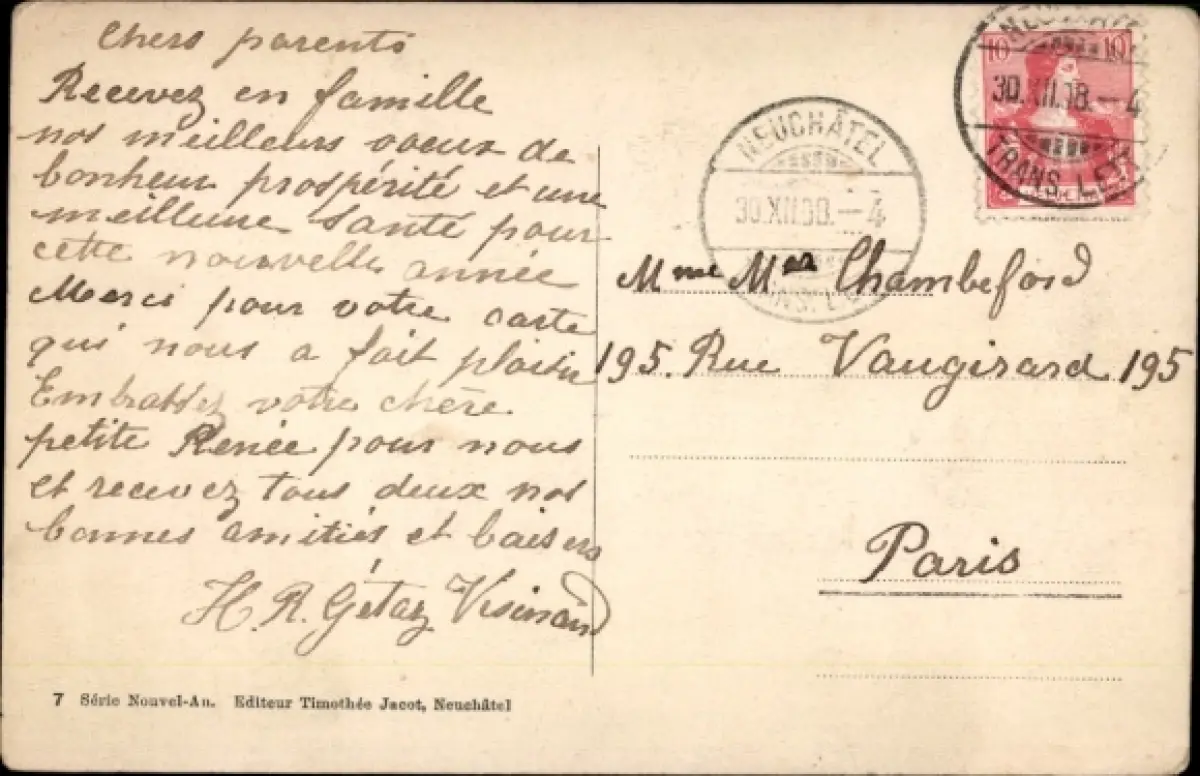 Chers parents
Recevez en famille
nos meilleurs voeux de
bonheur prospérité et une
meilleure santé pour
cette nouvelle année
Merci pour votre carte
qui nous a fait plaisir
Embrassez votre chère
petite Renée pour nous
et recevez tous deux nos
bonnes amitiés et baisers
H. R. Gétaz Visinand
7 Série Nouvel-An. Editeur Timothée Jacot, Neuchâtel
NEUCHÂTEL
30.XII.08.–4
10 10
–4
TRANS. LET
Mme Chambeford
195. Rue Vaugirard 195
Paris